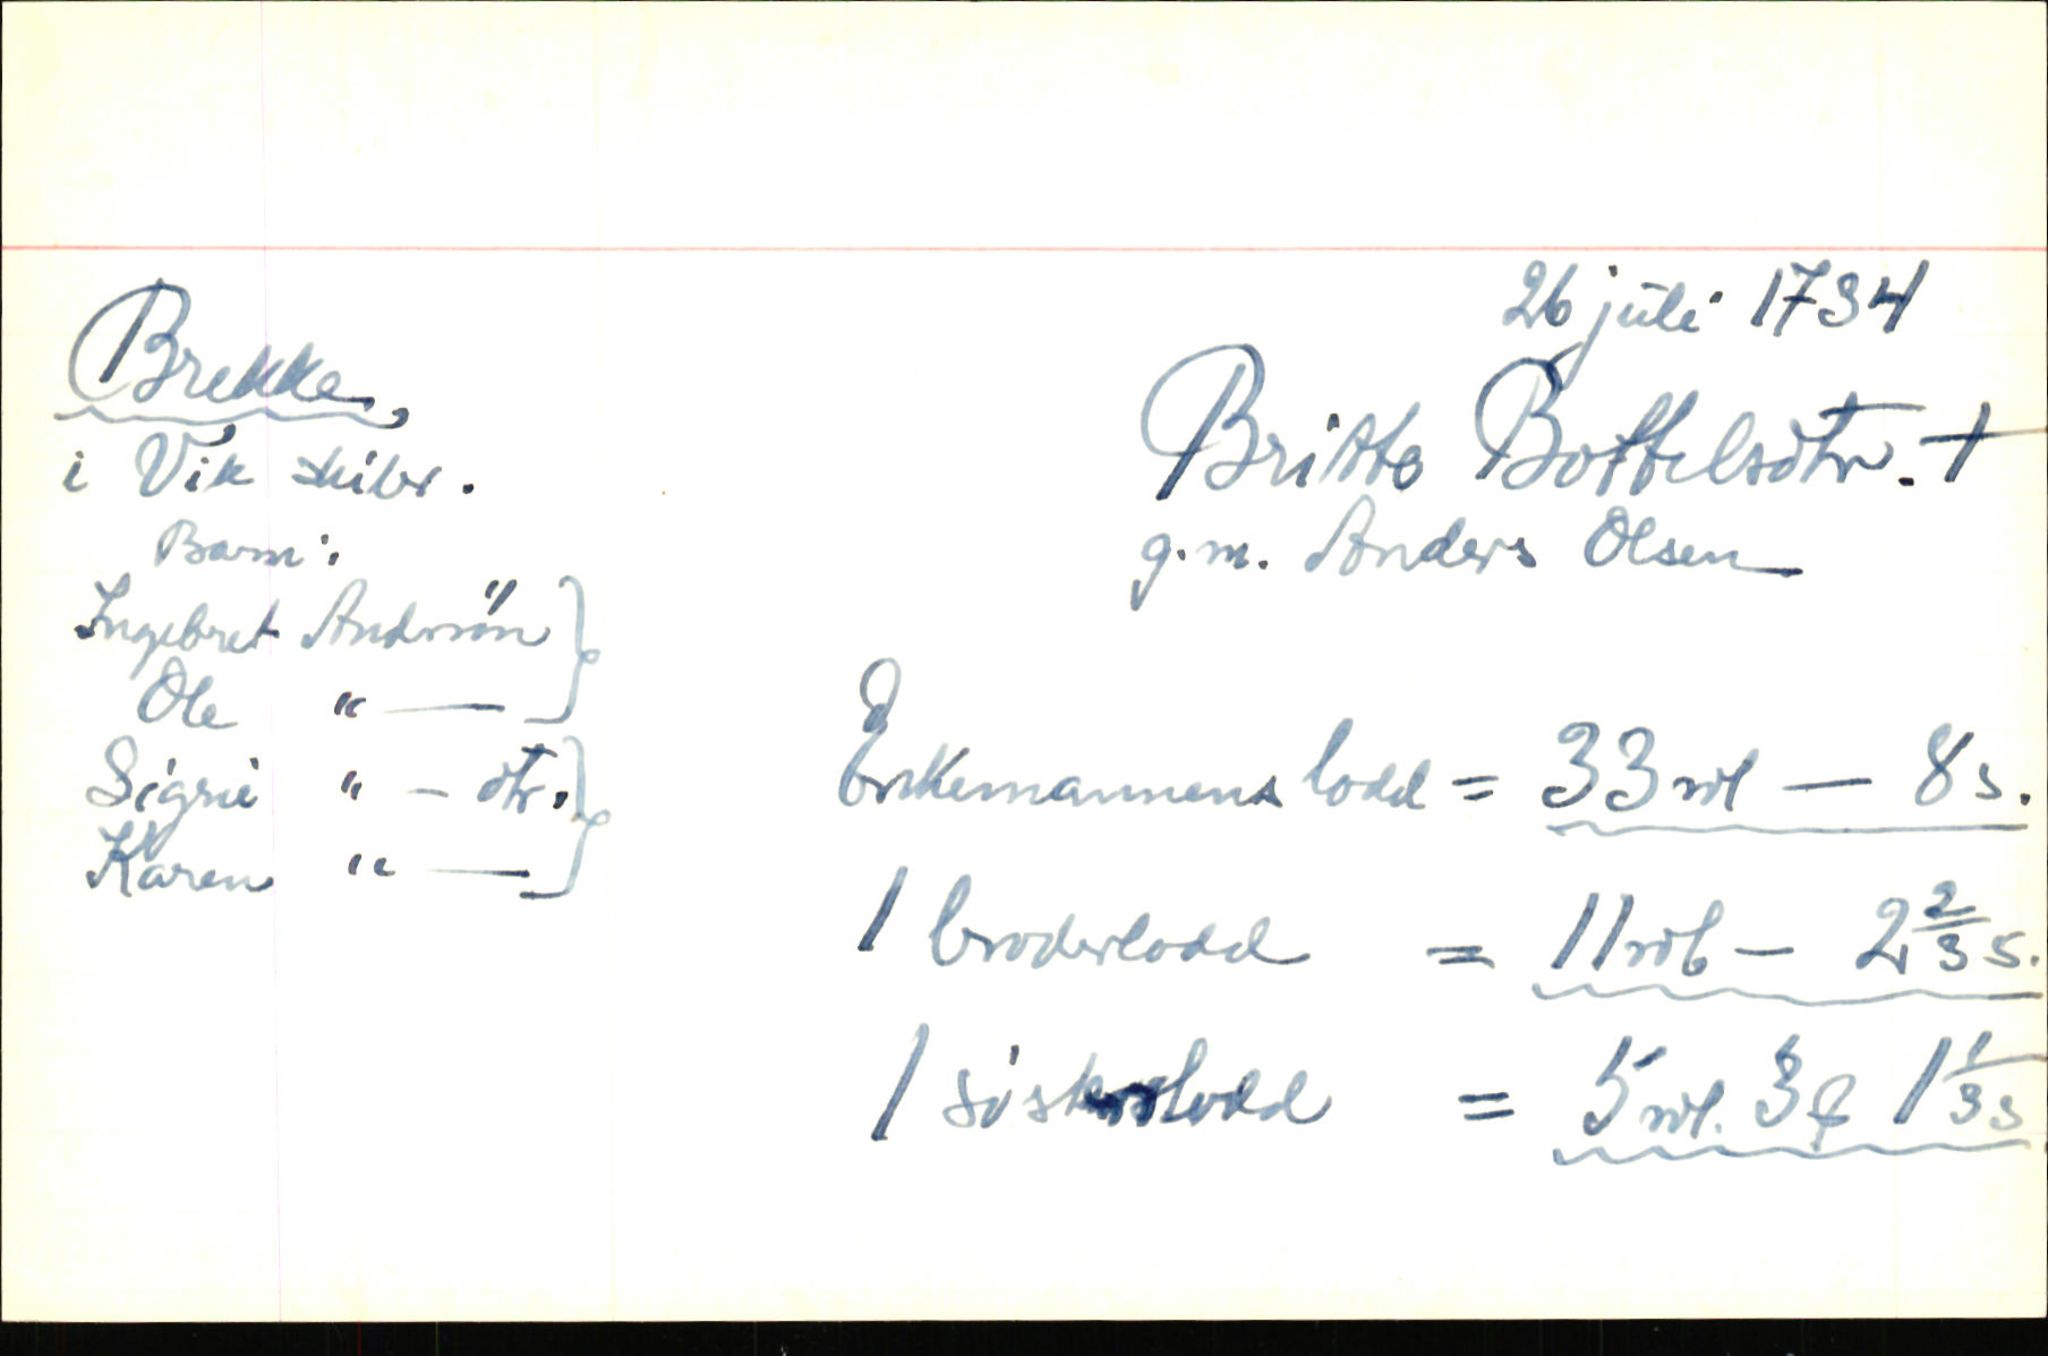 26 juli 1734
Brekke,
i Vik skibr.
Barn:
Ingebret Andersøn
Ole " —
Sigrie " – dtr.
Karen " —
Britte Bottelsdtr. †
g.m. Anders Olsen
Enkemannens lodd = 33 rdl — 8 s.
1 broderlodd = 11 rdl – 2 2/3 s.
1 søsterlodd = 5 rdl. 3 1 1/3 s